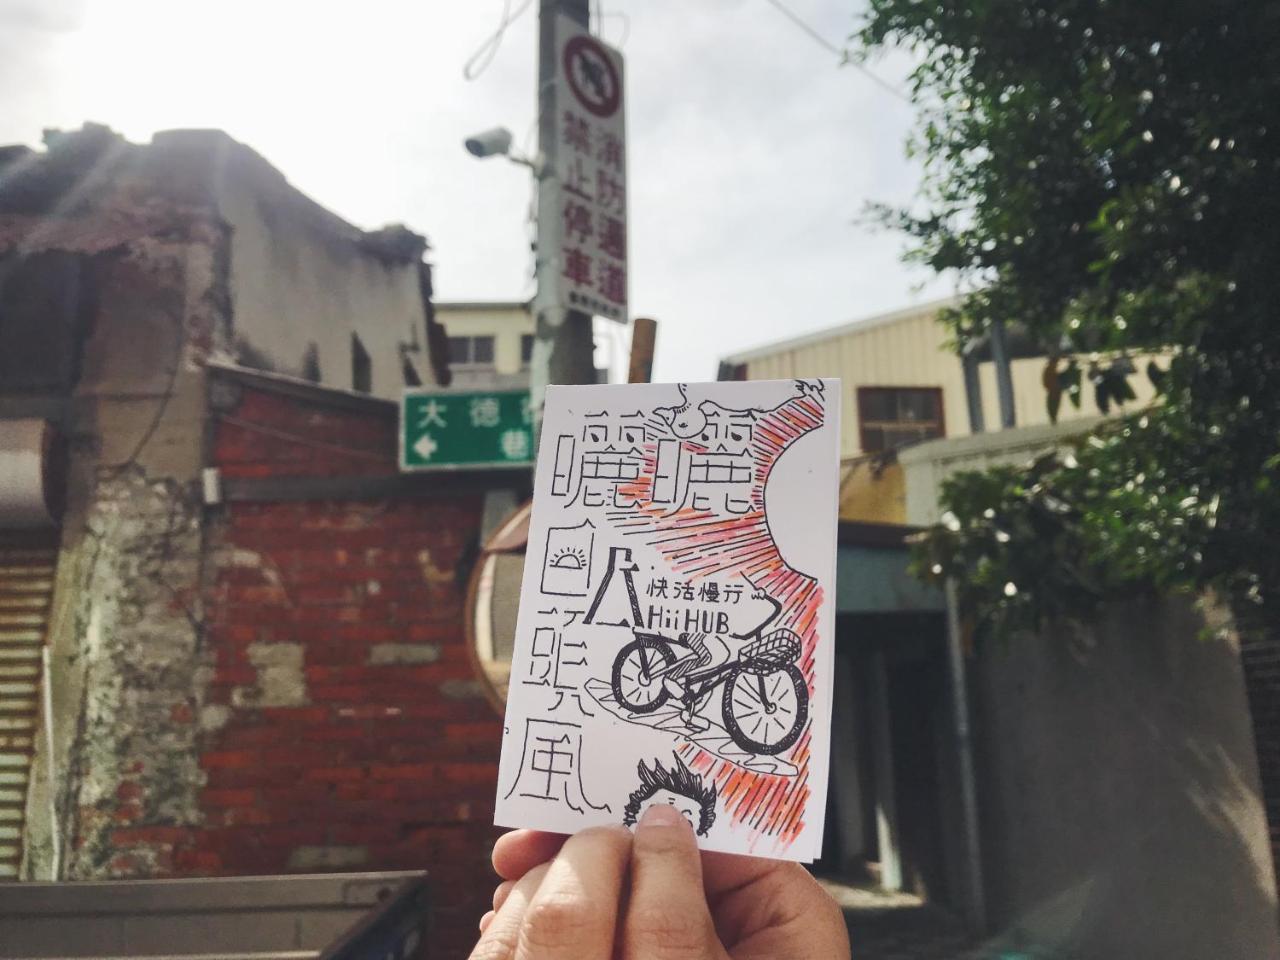 消防通道
禁止停車
大德
巷
曬曬
日頭風
快活慢行
HiiHUB